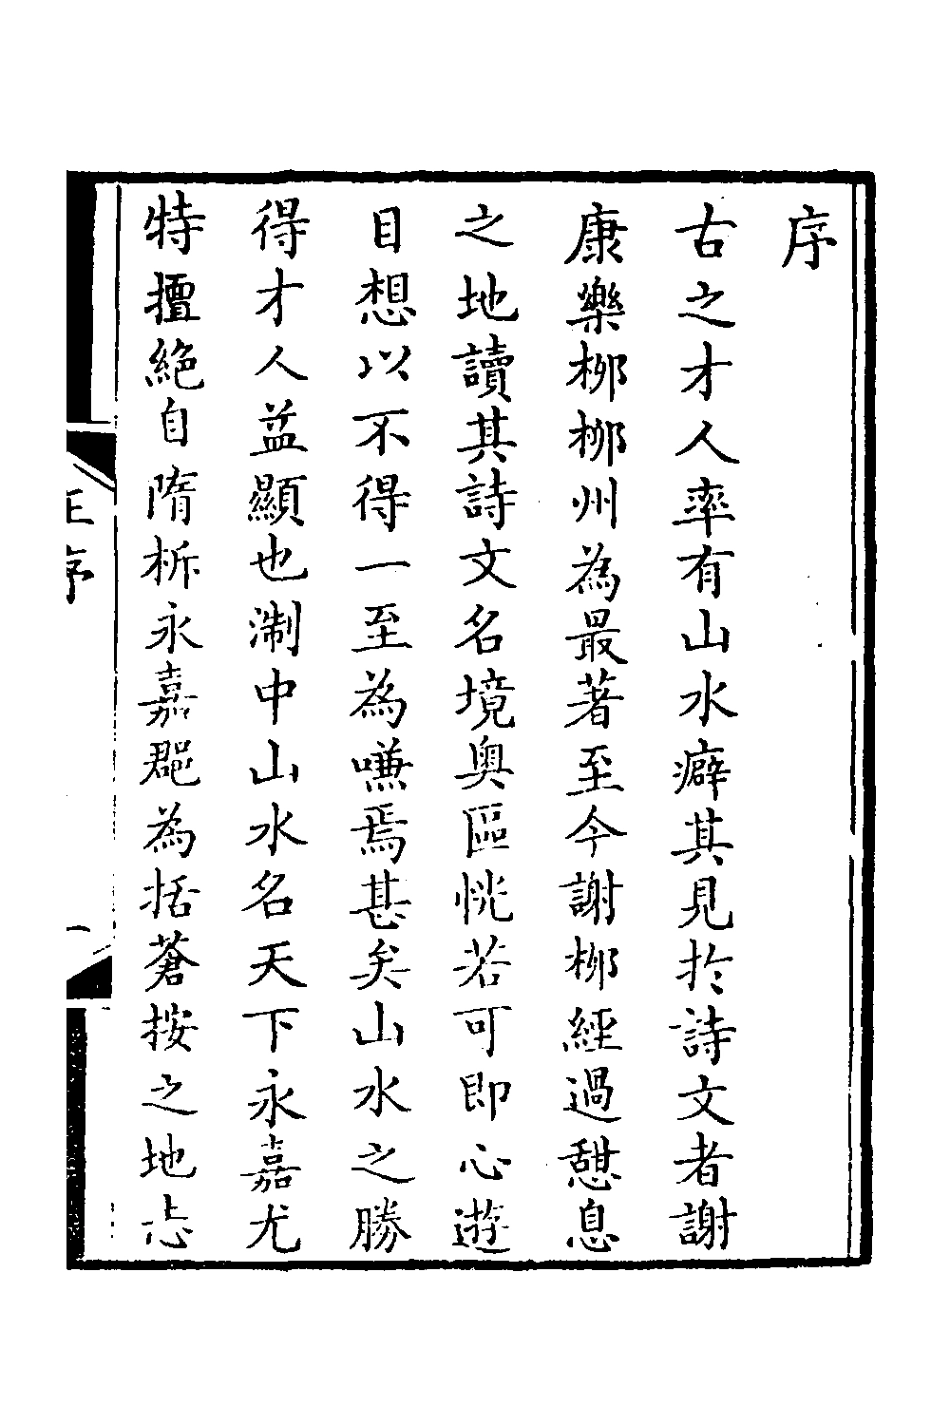 序
古之才人率有山水癖其見於詩文者謝
康樂柳柳州為最著至今謝柳經過憇息
之地讀其詩文名境奥區恍若可即心遊
目想以不得一至為嗛焉甚矣山水之勝
得才人益顯也淛中山水名天下永嘉尤
特擅絶自隋析永嘉郡為括蒼按之地志
序
一